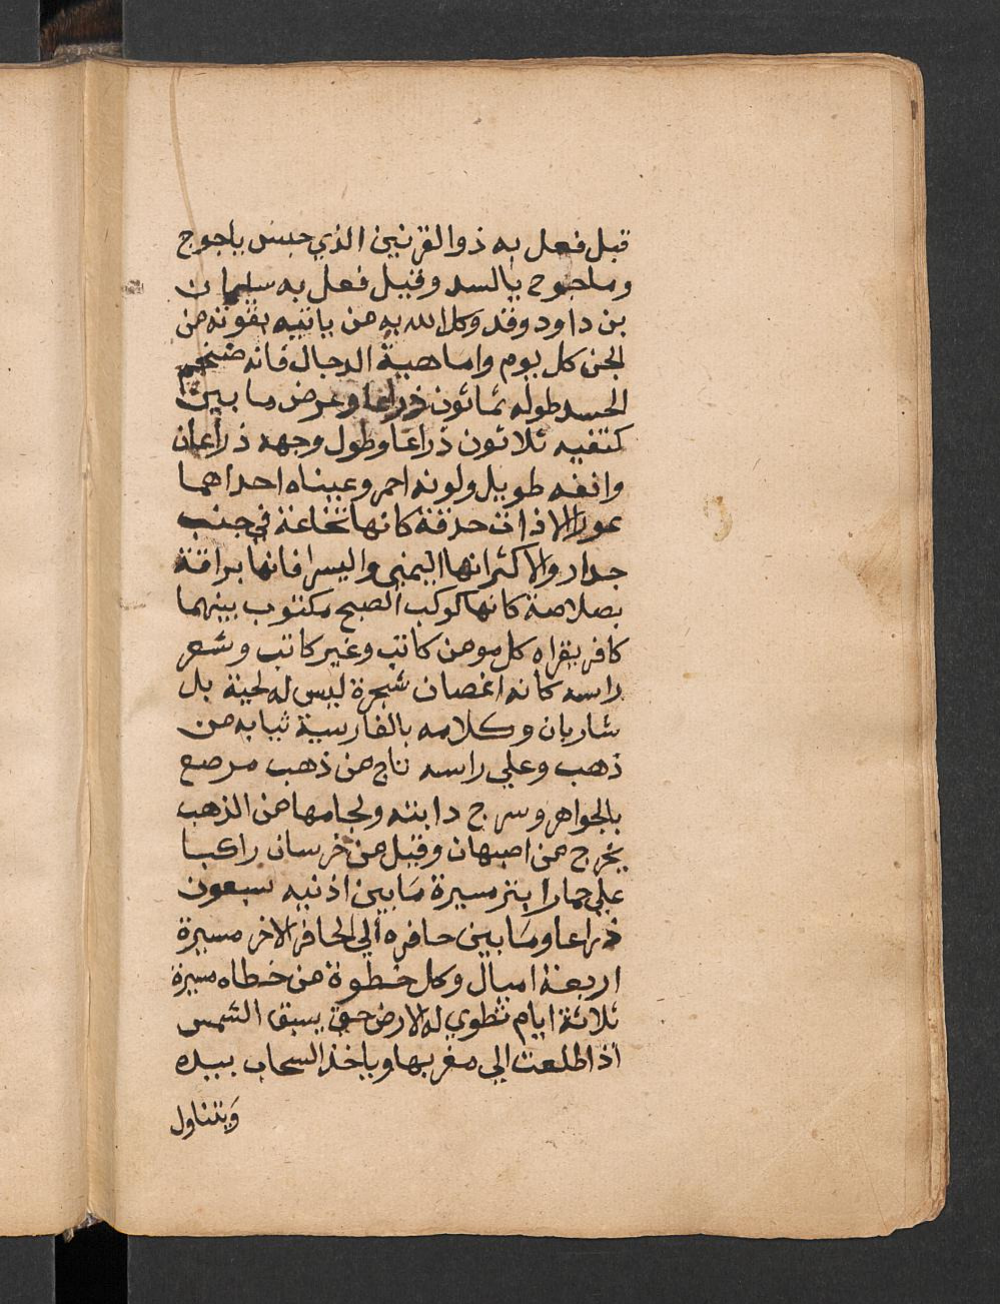 قيل فعل به ذو القرنين الذي حبس ياجوج
وماجوج بالسد وقيل فعل به سليمان
بن داود وقد وكل الله به من ياتيه بقوته من
الجن كل يوم واما هيية الدجال فانه ضخم
الجسد طوله ثمانون ذراعا وعرض ما بين
كتفيه ثلاثون ذراعا وطول وجهه ذراعان
وانفه طويل ولونه احمر وعيناه احداهما
عورالا ذات حدقة كانها نخاعة في جنب
جدار والاكثر انها اليمني واليسرا فانها براقة
بصلاصة كانها كوكب الصبح مكتوب بينهما
كافر يقراه كل مومن كاتب وغير كاتب وشعر
راسه كانه اغصان شجرة ليس له لحية بل
شاربان وكلامه بالفارسية ثيابه من
ذهب وعلي راسه تاج من ذهب مرصع
بالجواهر وسرج دابته ولجامها من الذهب
يخرج من اصبهان وقيل من خرسان راكبا
علي حمار ابتر مسيرة ما بين اذنيه سبعون
ذراعا وما بين حافره الي الحافر الاخر مسيرة
اربعة اميال وكل خطوة من خطاه مسيرة
ثلاثة ايام تطوي له الارض حتي يسبق الشمس
اذا طلعت الي مغربها وياخذ السحاب بيده
ويتناول